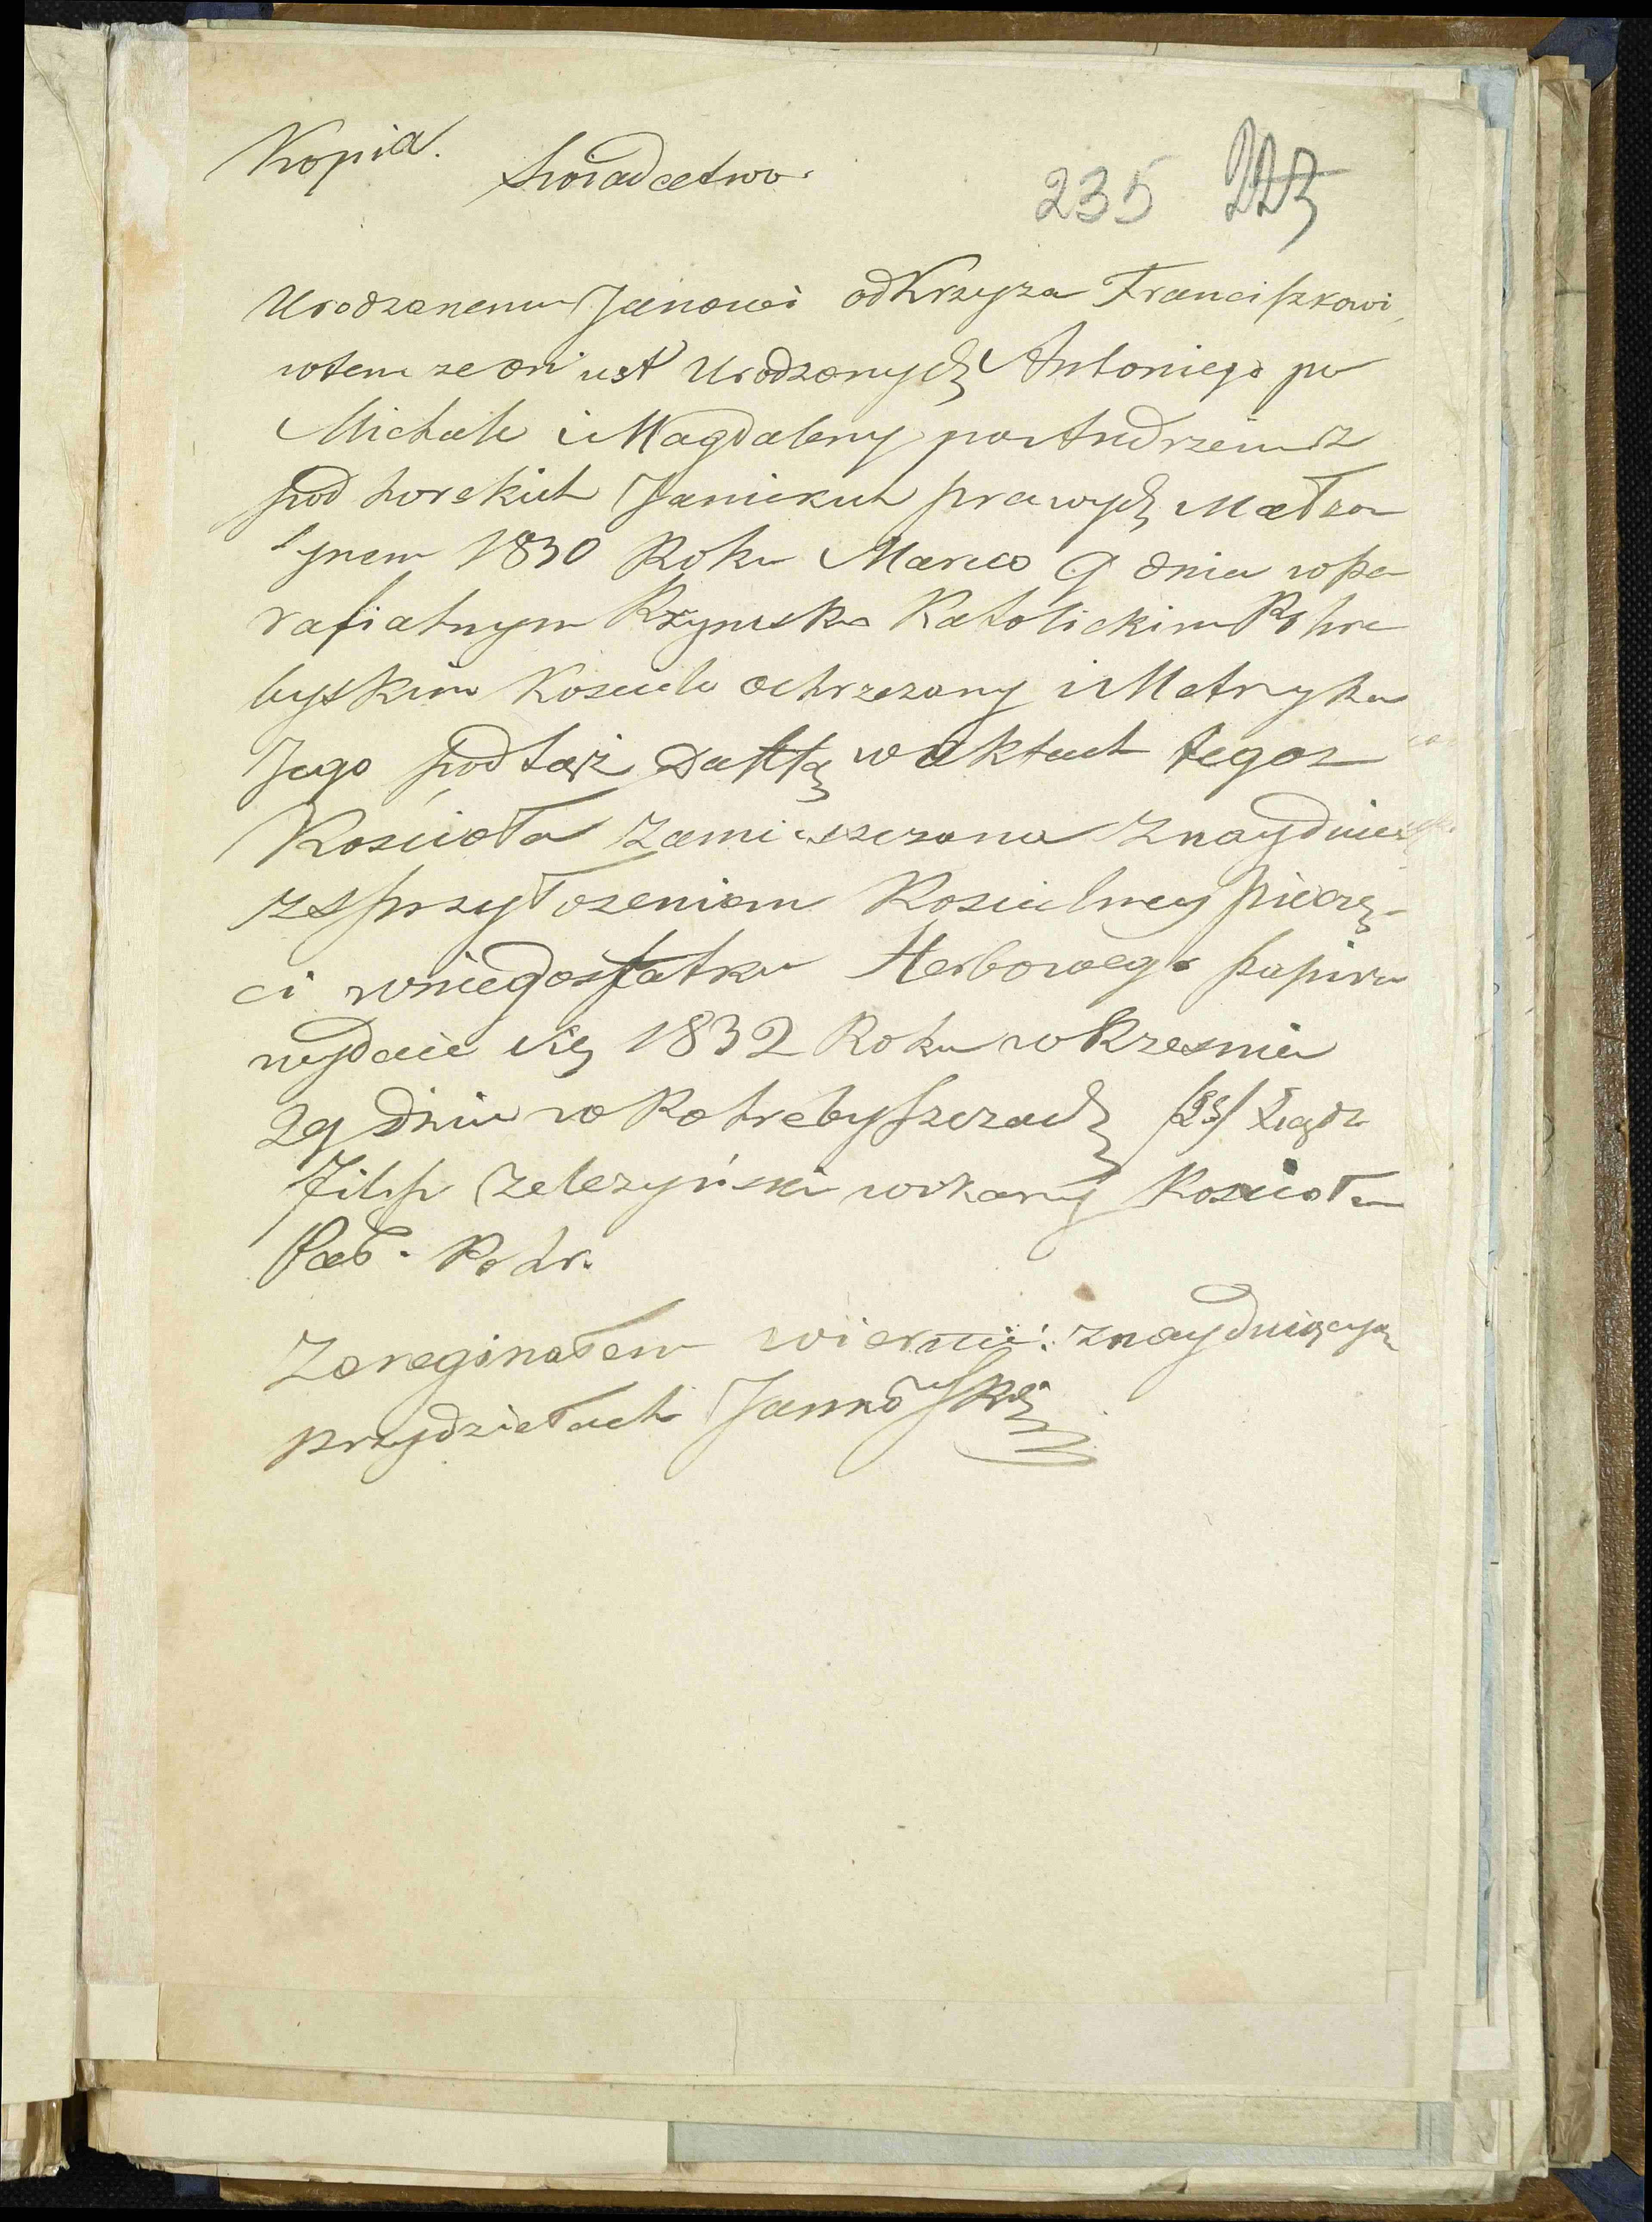 Kopia.
Swiadcetwo.
235 223
Urodzonemu Janowi od Krzyza Franciszkowi,
wtem ze on iest Urodzonych Antoniego po
Michale i Magdaleny po Andrzeiu z
pod horskich Janickich prawych Małżon
synem 1830 Roku Marca 9 dnia wpa
rafialnym Rzymsko Katolickim Pohre
byskim Kosciele ochrzczony i Metryka
Jego pod tąż Dattą w aktach tegoz
Koscioła zamieszczona znayduie się
z przyłozeniem Koscielney pieczę-
ci wniedostatku Herbowego papiru
wydaie się 1832 Roku w Rzesnia
29 dnia w Pohrebyszczach Xiądz
Filip Zelezynski wikary Kosciołа
Par. Pohr.
Zoreginałem wiernie: znayduiącym
przydziełach Janko